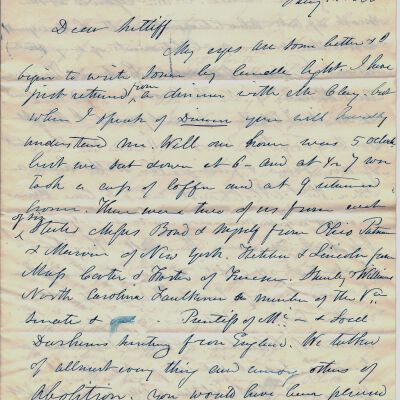 Dear Sutliff
My eyes are some better & I
begin to write some by candle light. I have
just returned from a dinner with Mr Clay. but
when I speak of Dinner you will hardly
understand me. Well our hour was 5 oclock
but we sat down at 6 - and at ½ 7 we
took a cup of Coffee and at 9 returned
home. There were two of us from each
of six States Messrs Bond & myself from Ohio Putnam
& Marvin of New York. Fletcher & Lincoln from
Mass Carter & Foster of Tennessee. Stanly & Williams
North Carolina Faulkner a member of the Va
Senate & Prentiss of Mi - & Lord
from England. We talked
of allmost every thing and among others of
Abolition. you would have been pleased